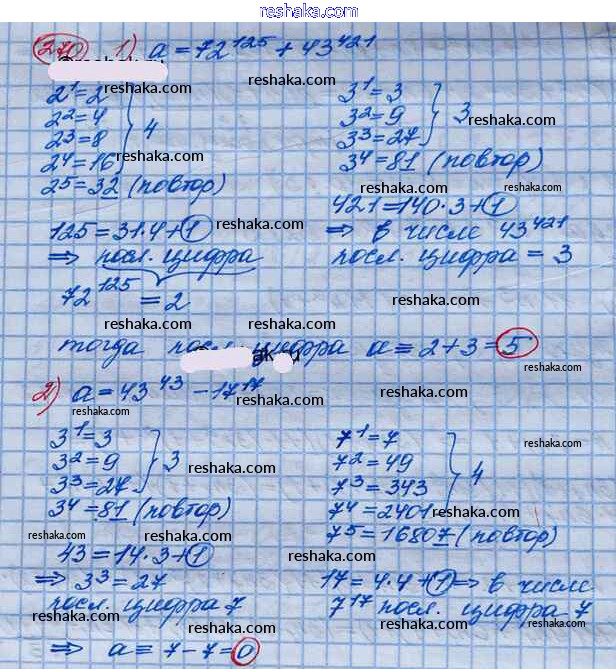 reshak.com
270 1) a = 72^125 + 43^421
reshaka.com
2^1 = 2
2^2 = 4
2^3 = 8
2^4 = 16
2^5 = 32 (повтор)
4
reshaka.com
reshaka.com
3^1 = 3
3^2 = 9
3^3 = 27
3^4 = 81 (повтор)
3
reshaka.com
reshaka.com
125 = 31·4+1
⇒ посл. цифра
72^125 = 2
reshaka.com
reshaka.com
421 = 140·3+1
⇒ в числе 43^421
посл. цифра = 3
reshaka.com
reshaka.com
тогда посл. цифра a = 2+3 = 5
reshaka.com
reshaka.com
2) a = 43^43 - 17^17
reshaka.com
reshaka.com
reshaka.com
3^1 = 3
3^2 = 9
3^3 = 27
3^4 = 81 (повтор)
3
reshaka.com
reshaka.com
7^1 = 7
7^2 = 49
7^3 = 343
7^4 = 2401
7^5 = 16807 (повтор)
4
reshaka.com
reshaka.com
reshaka.com
43 = 14·3+1
⇒ 3^3 = 27
посл. цифра 7
reshaka.com
reshaka.com
17 = 4·4+1 ⇒ в числе
7^17 посл. цифра 7
reshaka.com
reshaka.com
⇒ a = 7-7 = 0
reshaka.com
reshaka.com